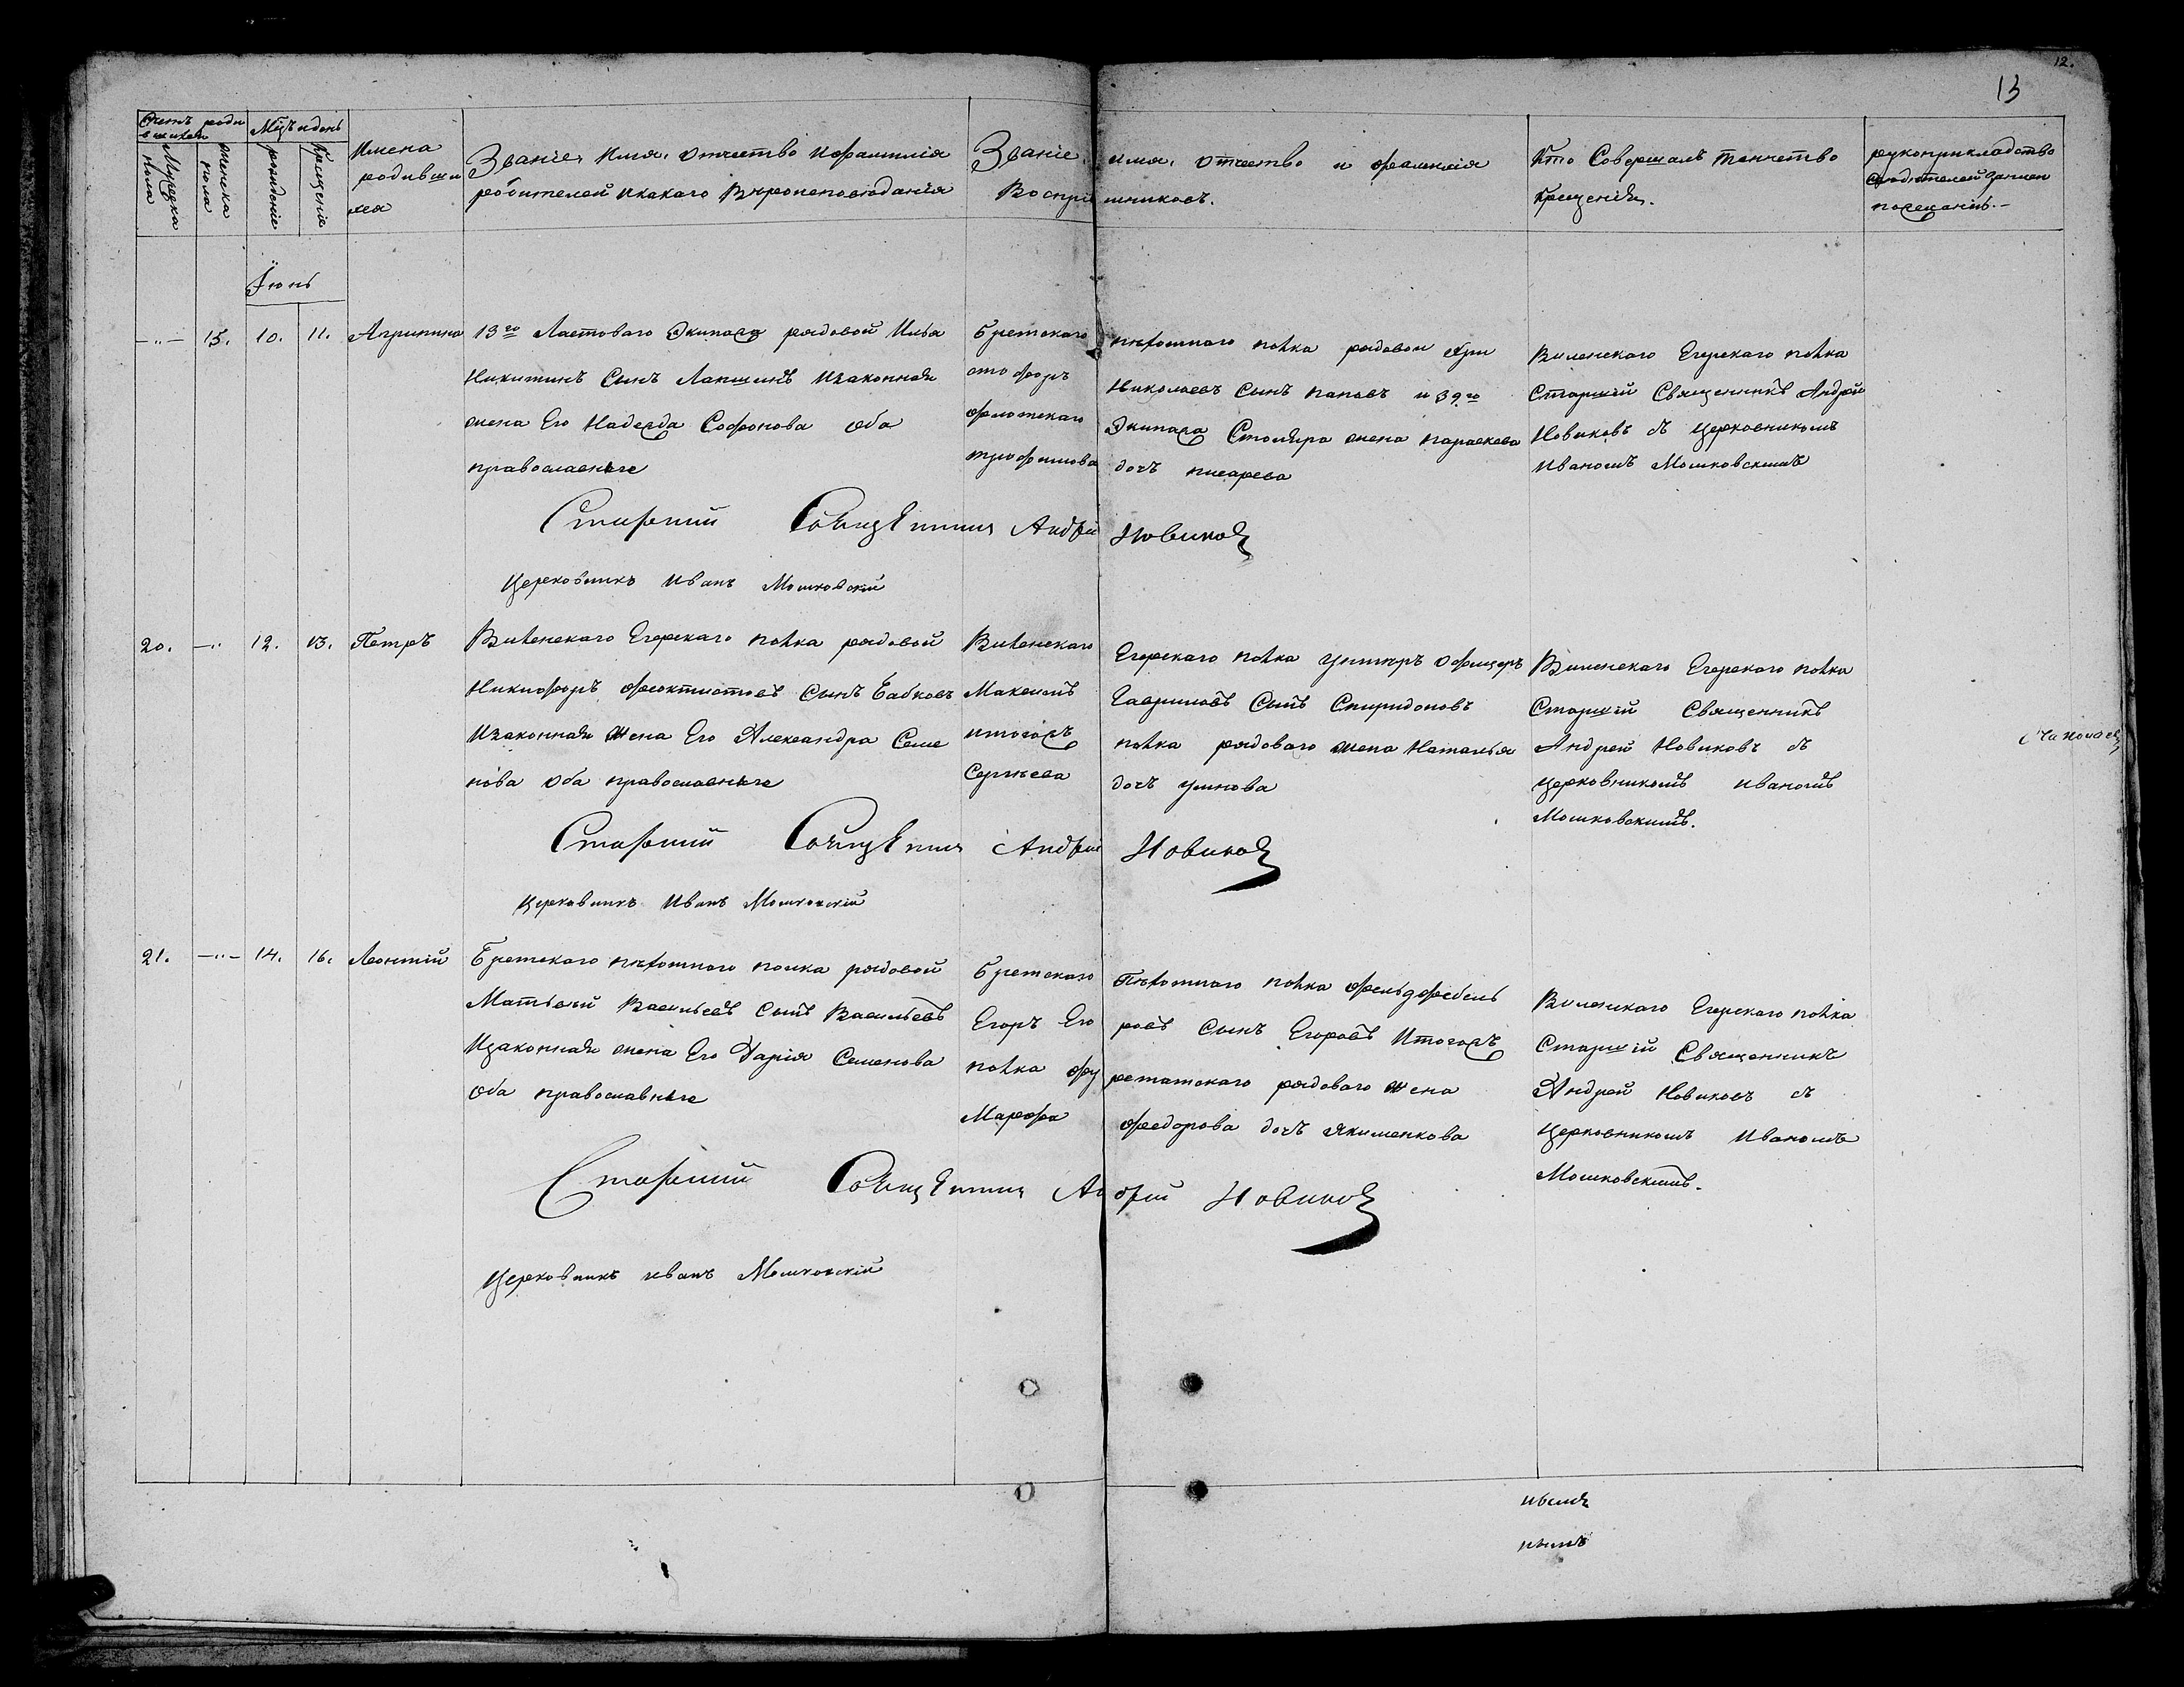 12.
13
Счетъ роди
вшихся
Мцъ и день
Мужеска
пола
женска
пола
рожденіе
крещеніе
Имена
родивши
хся
Званіе, Имя, отчество и фамилія
родителей и какаго Вѣроисповѣданія
Званіе, имя, отчество и фамилія
Воспріемниковъ.
Кто Совершалъ таинство
Крещенія.
рукоприкладство
свидѣтелей записи
по желанію.-
Іюнь
-"- 15. 10. 11. Агрипина
13го Ластоваго Экипажа рядовой Илья
Никитинъ Сынъ Лапшинъ Изаконная
жена Его Надежда Софонова Оба
православныѣ
Брестскаго пѣхотнаго полка рядовой
Николаевъ Сынъ паповъ и 39го
флотскаго Экипажа Столяра жена параскева
трофимова дочь писарева
Виленскаго Егерскаго полка
Старшій Священникъ Андрей
Новиковъ съ церковникомъ
Иваномъ Мошковскимъ
Старшій Священникъ Андрей Новиковъ
Церковникъ Иванъ Мошковскій
20. -" 12. 13. Петръ
Виленскаго Егерскаго полка рядовой
Никифоръ Феоктистовъ Сынъ Бабковъ
Изаконная жена Его Александра Семе
нова Оба православныѣ
Виленскаго Егерскаго полка унтеръ офицеръ
Максимъ Гавриловъ Сынъ Спиридоновъ
итогожъ полка рядоваго жена Наталья
Сергѣева дочь умнова
Виленскаго Егерскаго полка
Старшій Священникъ
Андрей Новиковъ съ
церковникомъ Иваномъ
Мошковскимъ.
Старшій Священникъ Андрей Новиковъ
Церковникъ Иванъ Мошковскій
21. -"- 14. 16. Леонтий
Брестскаго пѣхотнаго полка рядовой
Матвѣй Васильевъ Сынъ Васильевъ
Изаконная жена Его Дарія Семенова
Оба православныѣ
Брестскаго Пѣхотнаго полка Фельдфебель
Егоръ Егоровъ Сынъ Егоровъ Итогожъ
полка фурштатскаго рядоваго жена
Марфа Федорова дочь Якименкова
Виленскаго Егерскаго полка
Старшій Священникъ
Андрей Новиковъ съ
Церковникомъ Иваномъ
Мошковскимъ.
Старшій Священникъ Андрей Новиковъ
Церковникъ Иванъ Мошковскій